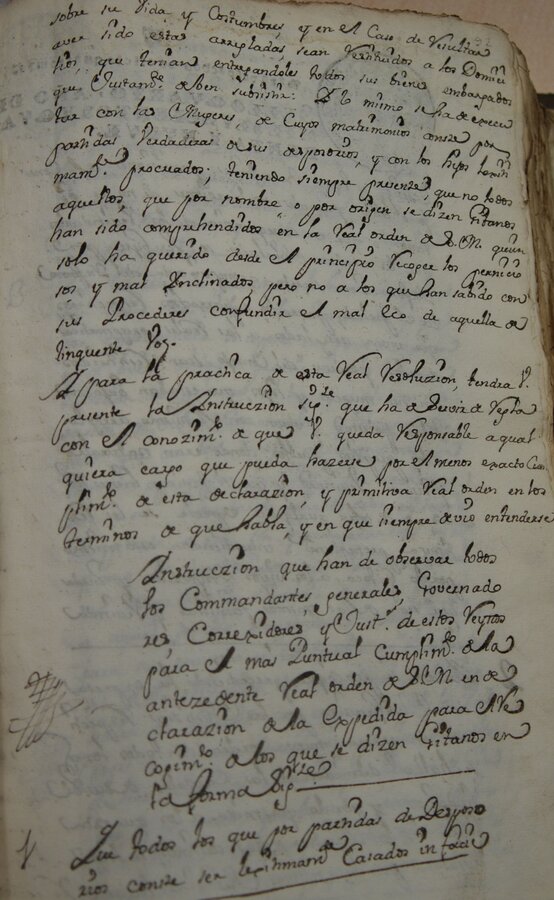 sobre su Vida y Costumbres, y en el Caso de Resultar
aver sido estas arregladas, sean Restituidos a los Domici
lios, que tenian entregandoles todos sus bienes embargados
que Justam.te deben subsistir. Y lo mismo se ha de execu
tar con las Mugeres, de Cuyos matrimonios conste por
partidas Verdaderas de sus desposorios, y con los hijos lexiti
mam.te procreados; teniendo siempre presente, que no todos
aquellos, que por nombre o por origen se dizen Gitanos
han sido comprehendidos en la Real orden de S.M. quien
solo ha querido desde el principio Recoger los pernicio
sos y mal Ynclinados pero no a los que han sabido con
sus Procederes confundir el mal eco de aquella de
linquente Voz.
Y para la practica de esta Real Resoluzion, tendra V.
presente la Ynstruczion sig.te que ha de servir de Regla
con el conozim.to de que V. queda Responsable a qual
quiera cargo que pueda hazerse por el menos exacto Cum
plim.to de esta declarazion, y primitiva Real orden en los
terminos de que habla, y en que siempre devio entenderse
Ynstruczion que han de observar todos
los Commandantes generales, Governado
res, Correxidores, y Just.as de estos Reynos
para el mas Puntual Cumplim.to de la
antezedente Real orden de S.M. en de
clarazion de la Expedida para el Re
cogim.to de los que se dizen Gitanos en
la forma sig.te
1 Que todos los que por partidas de Desposo
rios conste ser lexitimam.te Casados in facie